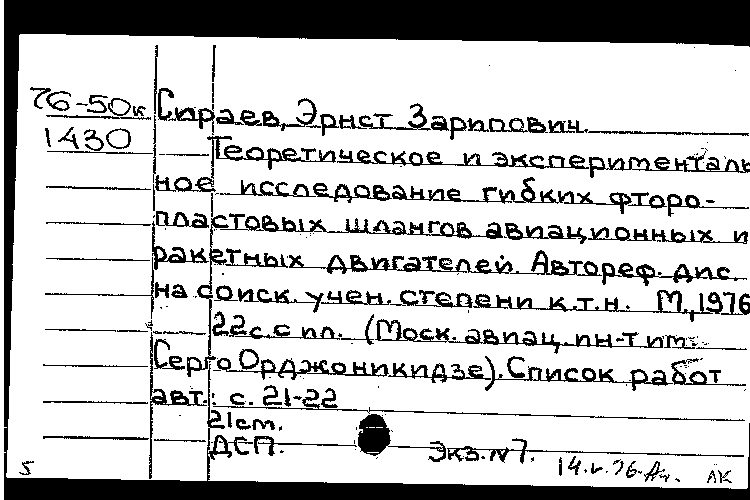 76-50к Сираев, Эрнст Зарипович.
1430
Теоретическое и эксперименталь
ное исследование гибких фторо-
пластовых шлангов авиационных и
ракетных двигателей. Автореф. дис.
на соиск. учен. степени к.т.н. М., 1976
22с. с ил. (Моск. авиац. ин-т им.
Серго Орджоникидзе). Список работ
авт.: с. 21-22
21cm.
ДСП.
Экз. №7.
5 14.V.76. ЛК